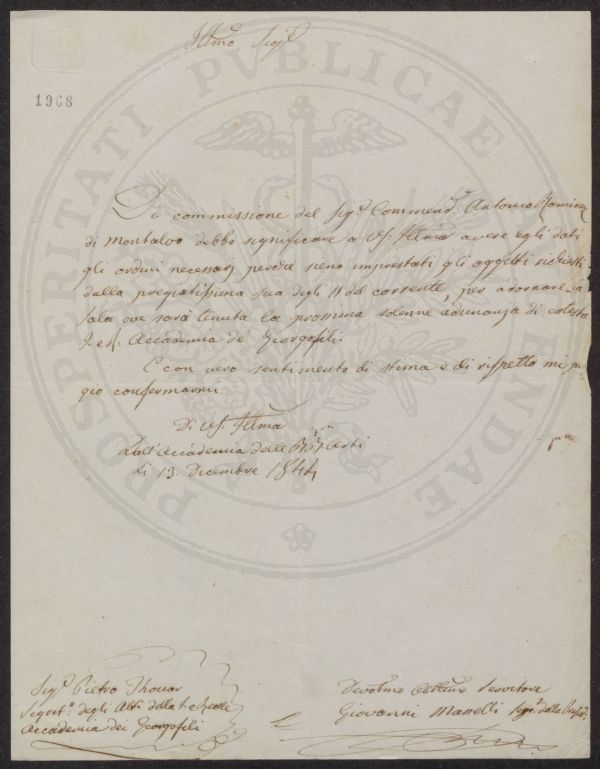 Illmo Sigre
1968
PROSPERITATI PVBLICAE AVGENDAE
Di commissione del Sigr Commendre Antonio Ramirez
di Montalvo debbo significare a VS. Illma avere egli dati
gli ordini necessarj perchè sieno imprestati gli oggetti richiesti
dalla pregiatissima sua degli 11 del corrente, per adornare la
Sala ove sarà tenuta la prossima solenne adunanza di cotesta
I. e R. Accademia de' Georgofili.
E con vero sentimento di stima e di rispetto mi pre
gio confermarmi
Di VS. Illma
Dall'Accademia delle Belle Arti
Li 13. Dicembre 1844
Sigr Pietro Thouar
Segret.o degli Atti della I. e Reale
Accademia dei Georgofili
Devotmo Obbmo Servitore
Giovanni Masselli Segr. della Presid.